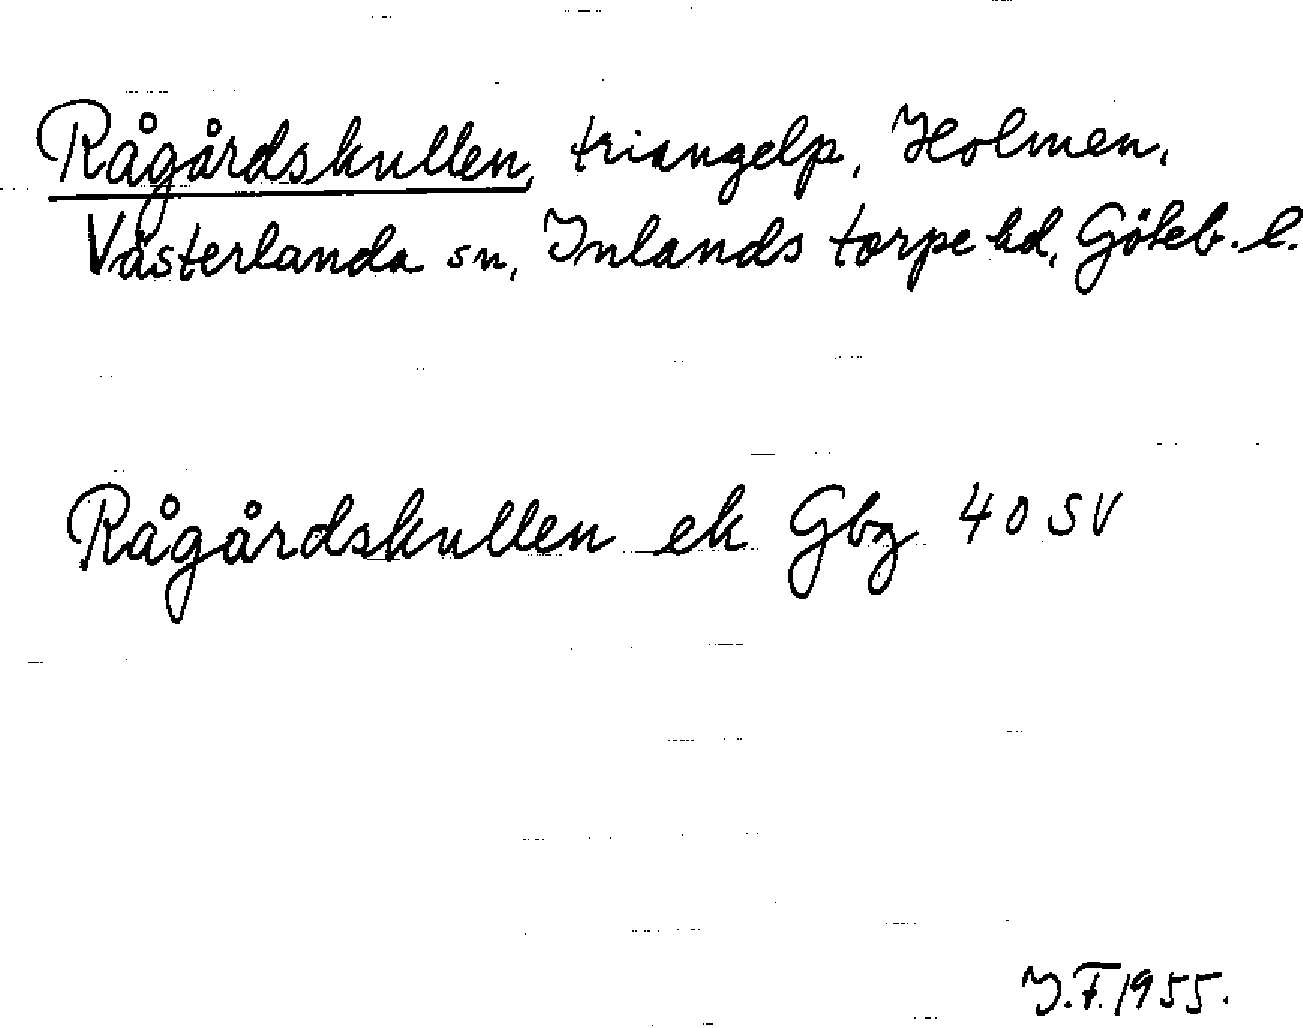 Rågårdskullen, triangelp, Holmen,
Västerlanda sn, Inlands torpe hd, Göteb. l.
Rågårdskullen ek Gbg 40 SV
I.F. 1955.